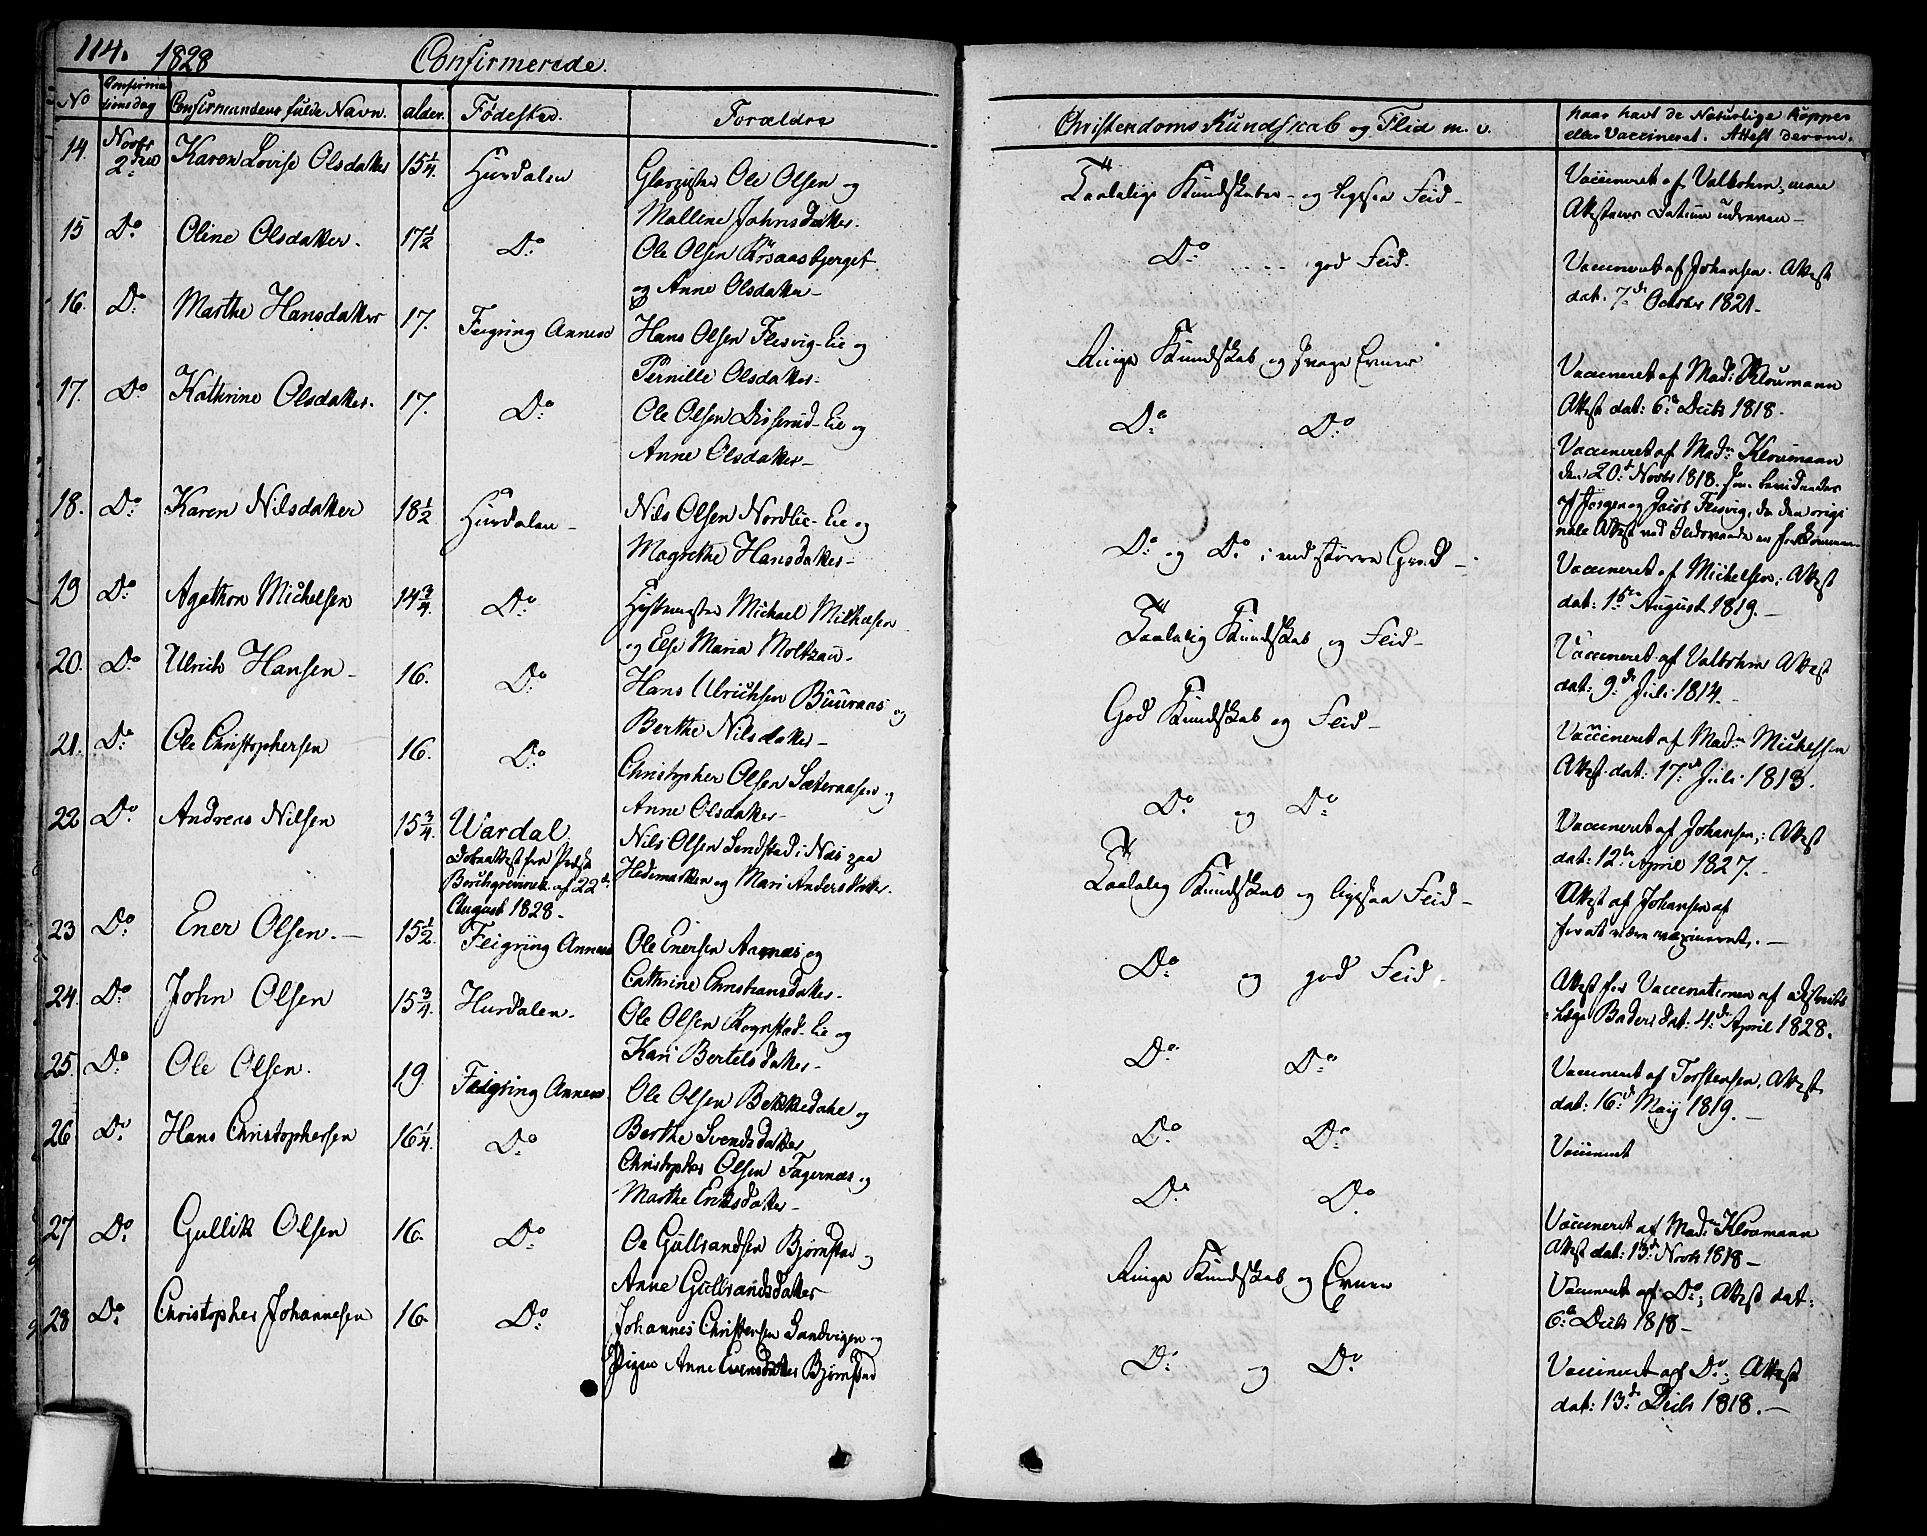 114. 1828 Confirmerede.
No Confirmationsdag Confirmandens fulde Navn. alder. Fødested. Forældre
14. Novbr 2den Karen Lovise Olsdatter 15 1/4 Hurdalen Ole Olsen og
Mallene Johnsdatter.
15 Do Oline Olsdatter. 17 1/2 Do Ole Olsen Rørsaasbjerget
og Anne Olsdatter
16. Do Marthe Hansdatter 17. Feigring Annexe Hans Olsen Flesvig-Eie og
Pernille Olsdatter
17. Do Kathrine Olsdatter. 17. Do Ole Olsen Disserud-Eie og
Anne Olsdatter
18. Do Karen Nilsdatter 18 1/2 Hurdalen Nils Olsen Nordlie-Eie og
Magrethe Hansdatter
19 Do Agathon Michelsen 14 3/4 Do Michael
og Else Maria Moltzau
20. Do Ulrich Hansen 16. Do Hans Ulrichsen Buuraas og
Berthe Nilsdatter
21. Do Ole Christophersen 16. Do Christopher Olsen Sæteraasen og
Anne Olsdatter
22 Do Andreas Nilsen 15 3/4 Wardal. Nils Olsen Sendstad i Næs paa
Døbeattest fra Hedemarken og Mari Andersdatter.
af 22d
August 1828
23 Do Ener Olsen. 15 1/2 Feigring Annexe Ole Enersen Aarnæs og
Cathrine Christiansdatter
24. Do John Olsen 15 3/4 Hurdalen. Ole Olsen Rognstad-Eie og
Kari Bertelsdatter
25. Do Ole Olsen. 19. Feigring Annexe Ole Olsen Bekkedahl og
Berthe Svendsdatter
26 Do Hans Christophersen 16 1/4 Do Christopher Olsen Fagernæs og
Marthe Eriksdatter
27 Do Gullik Olsen 16. Do Oe Gulbrandsen Bjørnstad og
Anne Gulbrandsdatter
28 Do Christopher Johannesen 16. Do Johannes Christensen Sandvigen og
Pigen Anne Evensdatter Bjørnstad
Christendoms Kundskab og Flid m. v. haar havt de Naturlige Kopper
eller Vaccineret. Attest derom.
Taalelige Kundskaber og ligesaa Flid Vaccineret af Valbohm, men
Attestens Datum udreven
Do god Flid. Vaccineret af Johansen. Attest
dat. 7de October 1821.
Ringe Kundskab og svage Evner Vaccineret af Mad: Kloumann
Attest dat: 6te Decbr 1818.
Do Do Vaccineret af Madm Kloumann
den 20de Novbr 1818.
af Jørgen og Jacob Flesvig, da den origi
nale Attest ved
Do og Do i end større Grad Vaccineret af Michelsen; Attest
dat: August 1819.
Taalelig Kundskab og Flid Vaccineret af Valbohm Attest
dat: 9de Juli 1814.
God Kundskab og Flid Vaccineret af Madm Michelsen
Attest dat: 17de Juli 1813.
Do og Do Vaccineret af Johansen; Attest
dat: 12te April 1827.
Taalelig Kundskab og ligesaa Flid Attest af Johansen af
for at være vaccineret.
Do og god Flid Attest for Vaccinationen af Districts
Læge Bader dat: 4de April 1828.
Do Do Vaccineret af Torstensen, Attest
dat: 16de Maij 1819.
Do Do Vaccineret
Do Do Vaccineret af Madm Kloumann
Attest dat: 13de Novbr 1818
Ringe Kundskab og Evner Vaccineret af Do; Attest dat:
6te Decbr 1818
Do og Do Vaccineret af Do; Attest
dat: 13de Decbr 1818.